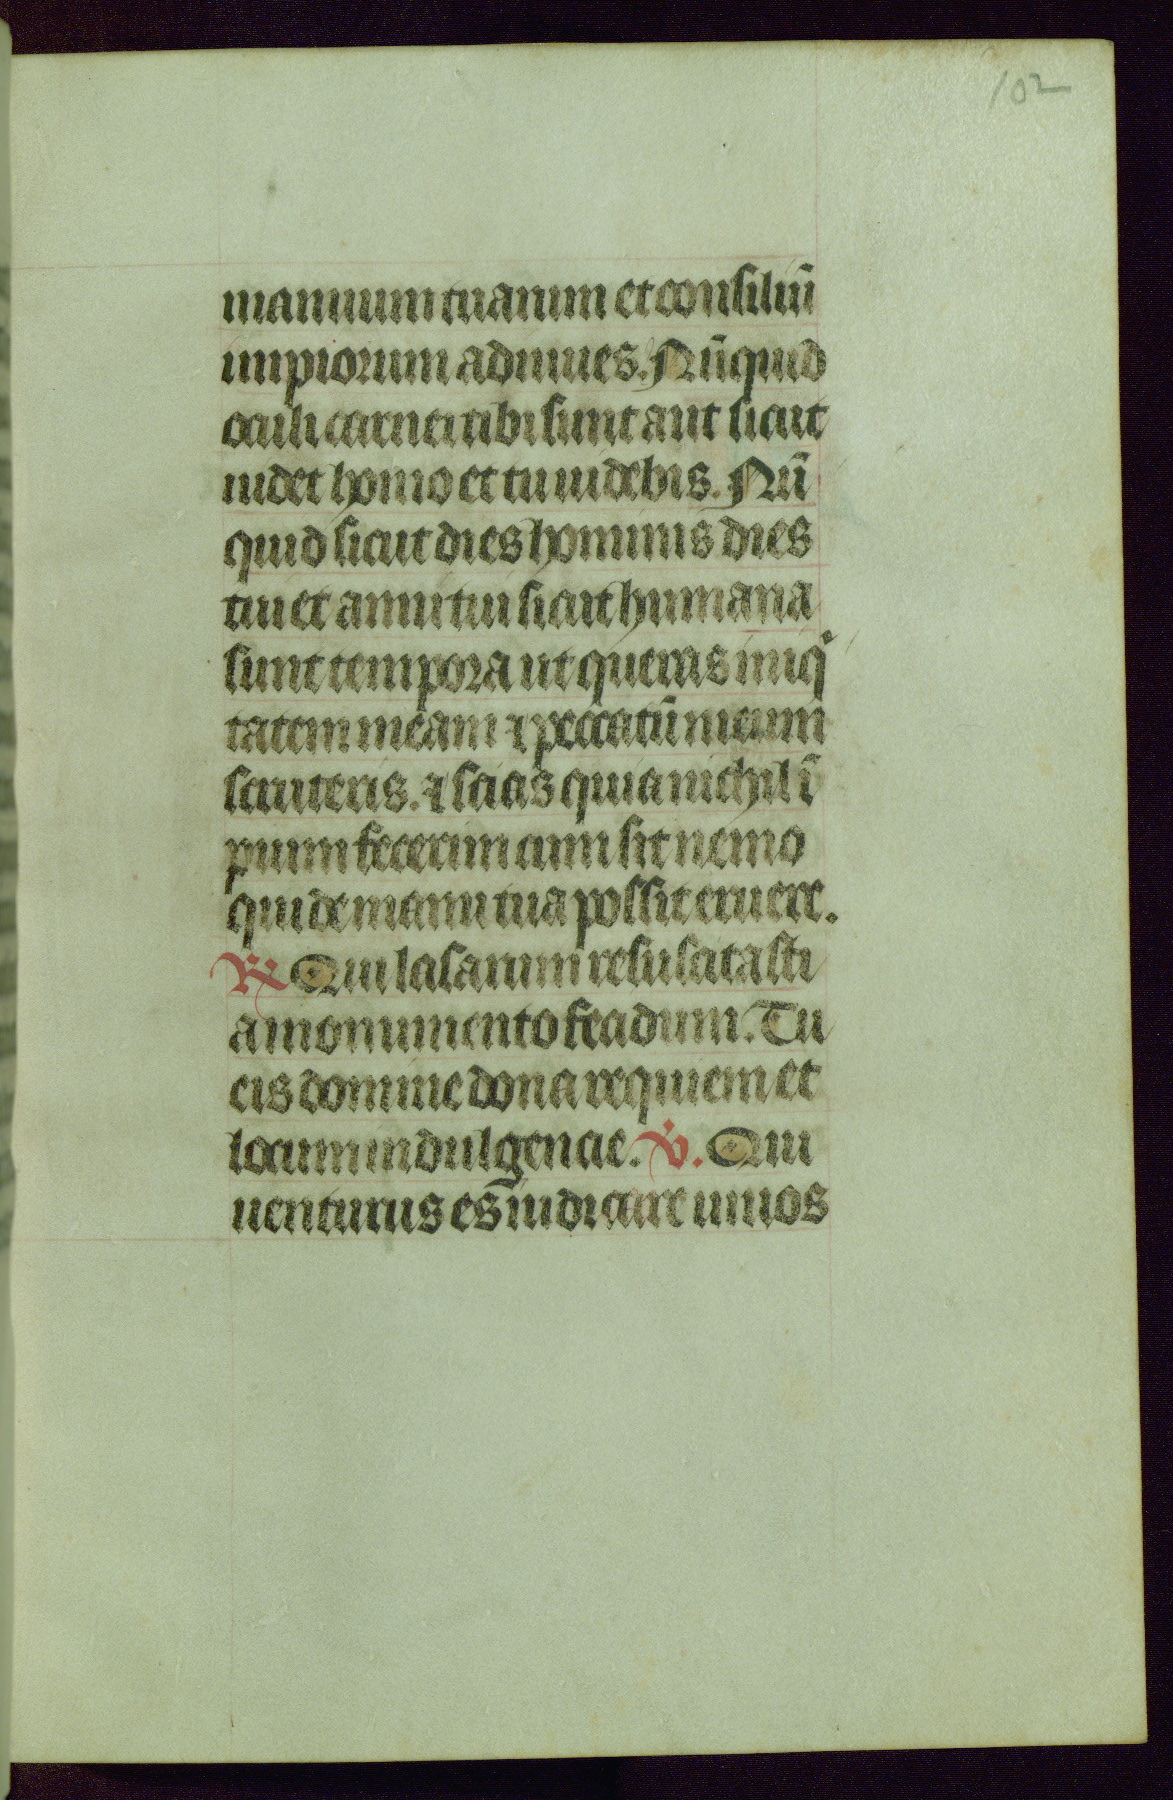 102
manuum tuarum et consiliū
impiorum adiuues. Nūquid
oculi carnei tibi sunt aut sicut
uidet homo et tu uidebis. Nū
quid sicut dies hominis dies
tui et anni tui sicut humana
sunt tempora ut queras iniqⁱ
tatem meam ⁊ peccatū meum
scruteris. ⁊ scias quia nichil ī
pium fecerim cum sit nemo
qui de manu tua possit eruere.
℟ Qui lasarum resuscitasti
a monumento feadum. Tu
eis domine dona requiem et
locum indulgencie. ℣. Qui
uenturus es iudicare uiuos